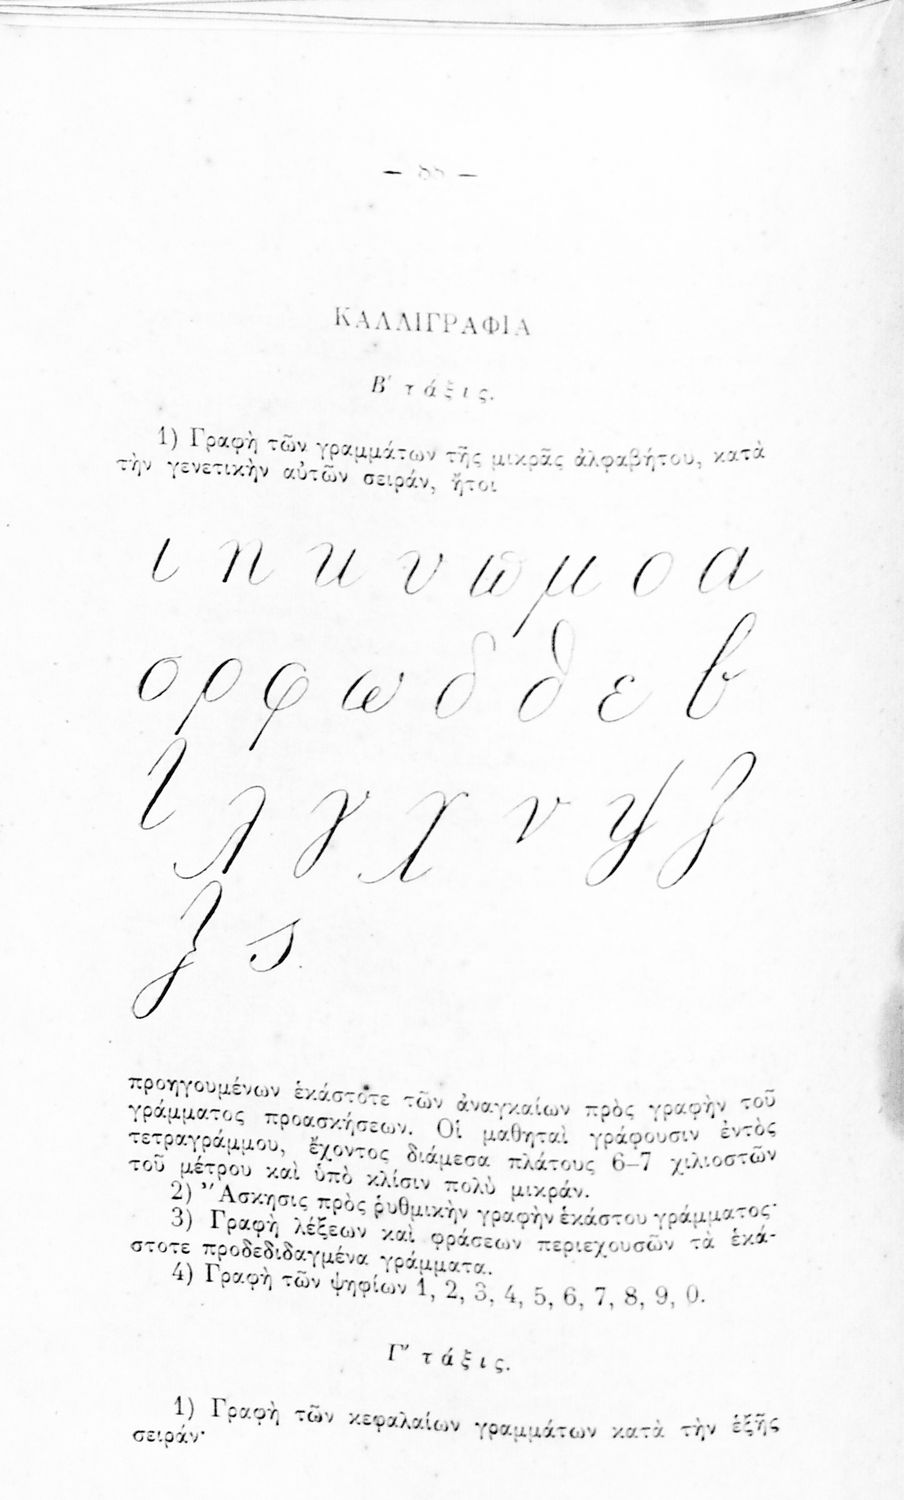 ΚΑΛΛΙΓΡΑΦΙΑ
Β′ τάξις.
1) Γραφὴ τῶν γραμμάτων τῆς μικρᾶς ἀλφαβήτου, κατὰ
τὴν γενετικὴν αὐτῶν σειράν, ἤτοι
ι η κ υ ϖ μ ο α
σ ρ φ ω δ θ ε β
τ λ γ χ ν ψ ζ
ξ ς
προηγουμένων ἑκάστοτε τῶν ἀναγκαίων πρὸς γραφὴν τοῦ
γράμματος προασκήσεων. Οἱ μαθηταὶ γράφουσιν ἐντὸς
τετραγράμμου, ἔχοντος διάμεσα πλάτους 6–7 χιλιοστῶν
τοῦ μέτρου καὶ ὑπὸ κλίσιν πολὺ μικράν.
2) Ἄσκησις πρὸς ῥυθμικὴν γραφὴν ἑκάστου γράμματος·
3) Γραφὴ λέξεων καὶ φράσεων περιεχουσῶν τὰ ἑκά-
στοτε προδεδιδαγμένα γράμματα.
4) Γραφὴ τῶν ψηφίων 1, 2, 3, 4, 5, 6, 7, 8, 9, 0.
Γ′ τάξις.
1) Γραφὴ τῶν κεφαλαίων γραμμάτων κατὰ τὴν ἑξῆς
σειράν·